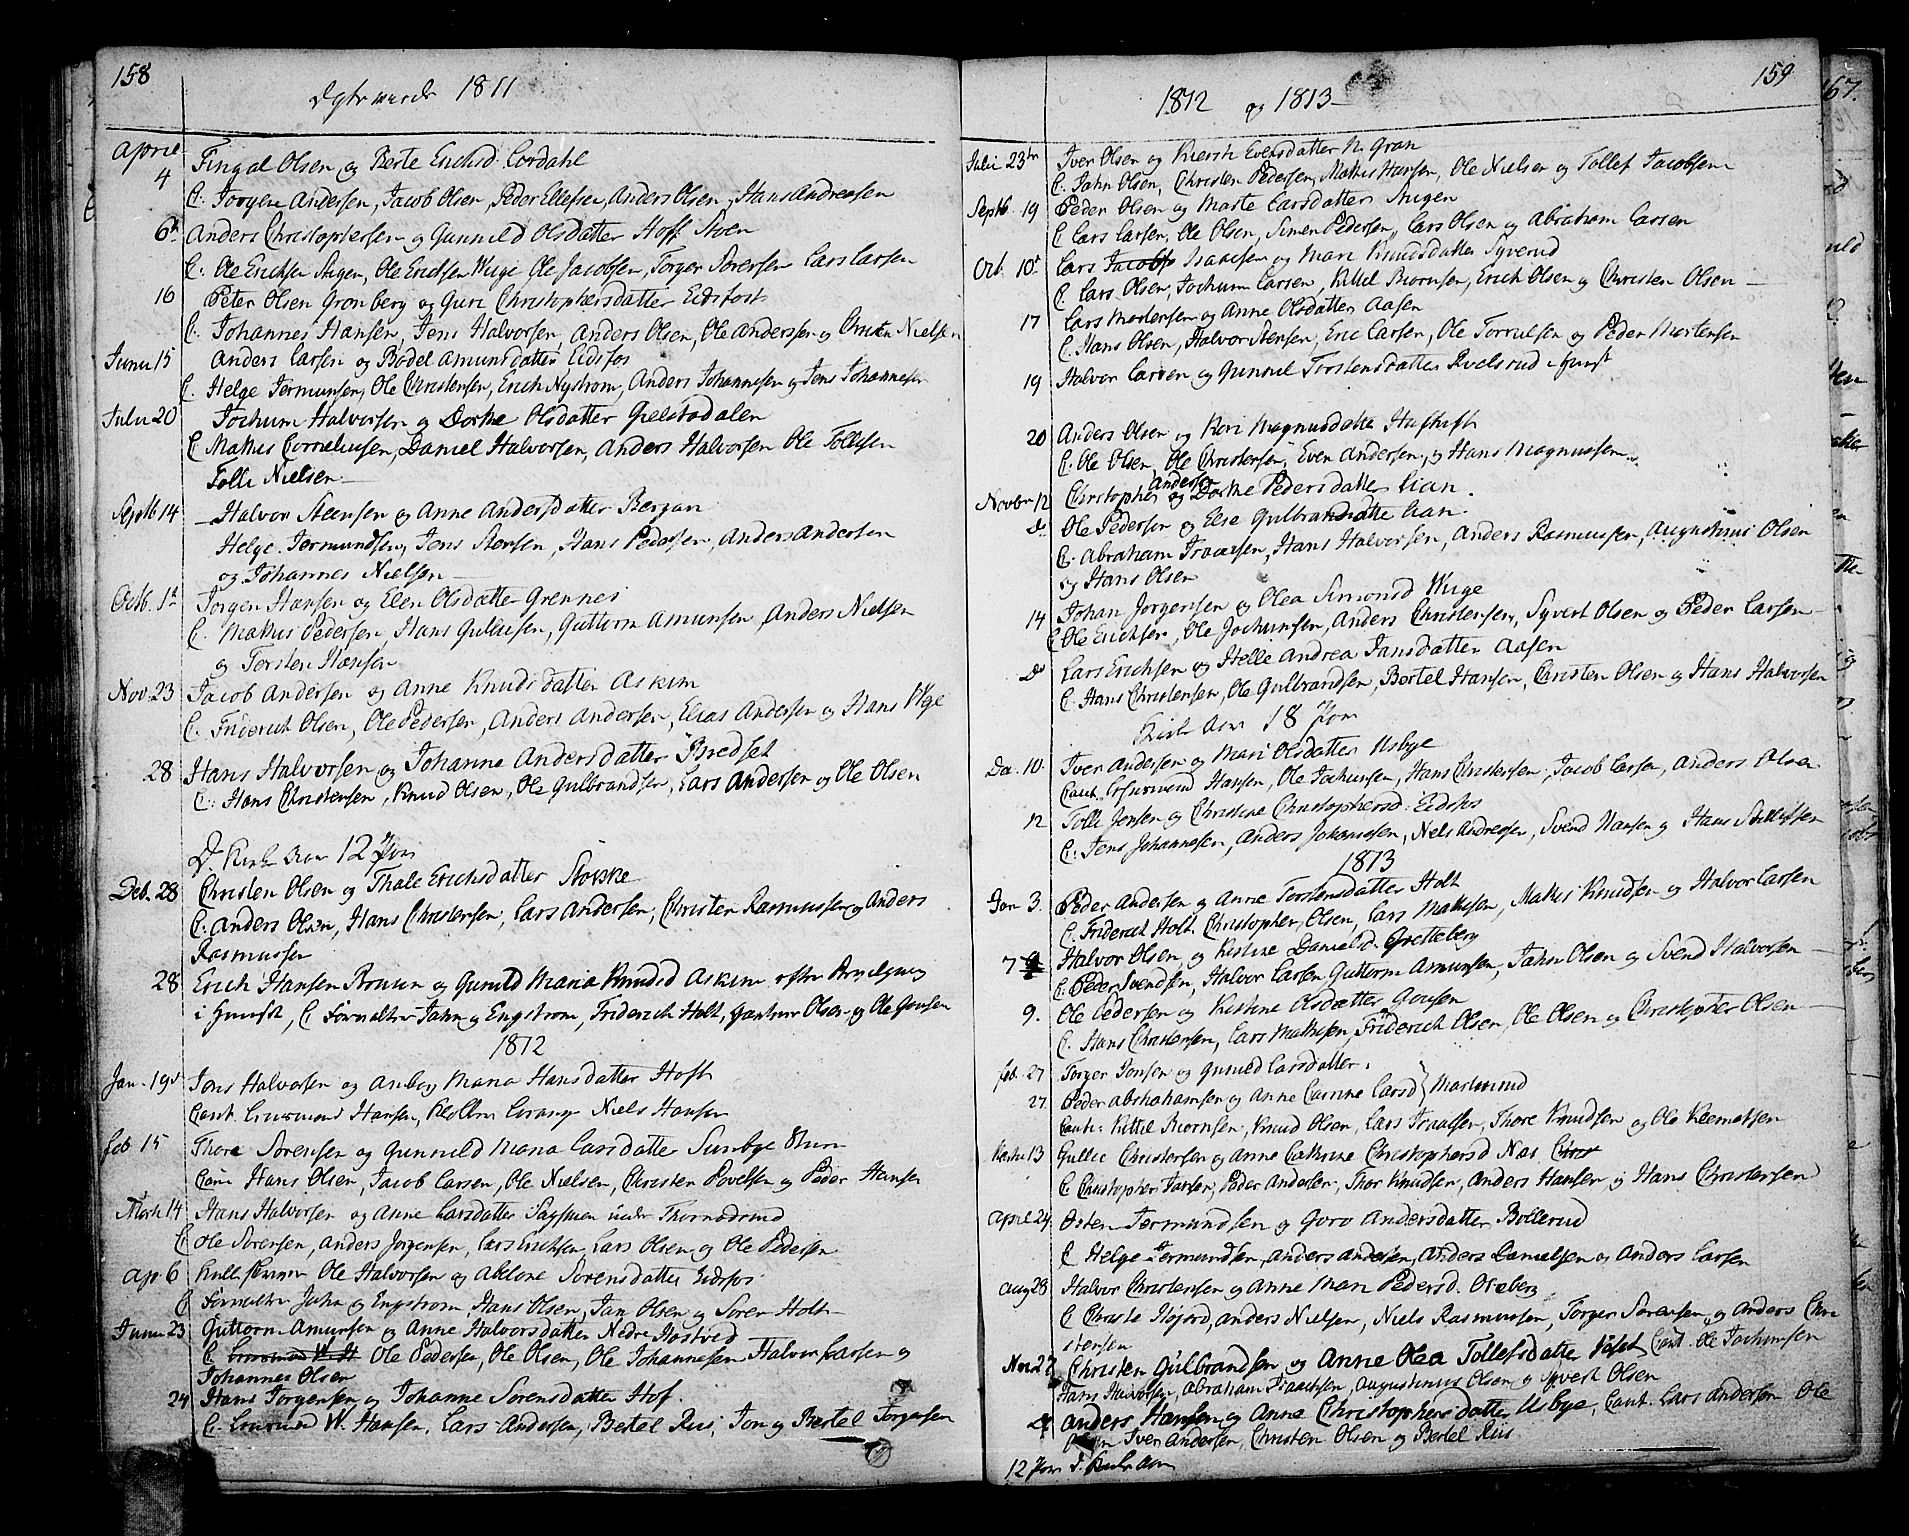 158
1811
April
4 Fingal Olsen og Berte Erichsd. Lordahl
C. Jørgen Andersen, Jacob Olsen, Peder Ellefsen, Anders Olsen, Hans Andreasen
6 Anders Christophersen og Gunnild Olsdatter Hoff
C. Ole Erichsen Stigen, Ole Erichsen Wige Ole Jacobsen, Torger Sørensen Lars Larsen
16 Peter Olsen Grønberg og Guri Christophersdatter Eidsfos
C. Johannes Hansen, Jens Halvorsen, Anders Olsen, Ole Andersen og Christen Nielsen
Junii 15 Anders Larsen og Bodel Amunsdatter Eidsfos
C. Helge Jermunsen, Ole Christensen, Erich Nystrøm, Anders Johannesen og Jens Johannesen
Julii 20 Jochum Halvorsen og Dorthe Olsdatter
C. Mathis Corneliusen, Daniel Halvorsen, Anders Halvorsen Ole Tollefsen
Tolle Nielsen
Septb 14 Halvor Steensen og Anne Andersdatter Bergan
Helge Jermundsen, Jens Stensen, Hans Pedersen, Anders Andersen
og Johannes Nielsen
Octb. 1 Jørgen Hansen og Elen Olsdatter Grennes
C. Mathis Pedersen, Hans Gulliksen, Guttorm Amunsen, Anders Nielsen
og Torsten Hansen
Nov. 23 Jacob Andersen og Anne Knudsdatter Askim
C. Friderich Olsen, Ole Pedersen, Anders Andersen, Elias Andersen og Hans Wige
28 Hans Halvorsen og Johanne Andersdatter Bredset
C. Hans Christensen, Knud Olsen, Ole Gulbrandsen, Lars Andersen og Ole Olsen
12
Deb. 28 Christen Olsen og Thale Erichsdatter
C. Anders Olsen, Hans Christensen, Lars Andersen, Christen Rasmussen og Anders
Rasmussen
28 Erich Hansen Bruun og Gunild Maria Knudsd Askim
C. Forvalter Jahn og Engstrøm, Friderich Holt, Olsen og Ole
1812
Jan. 19 Jens Halvorsen og Anborg Maria Hansdatter Hoff
Hansen, Niels Hansen
Feb 15 Thore Sørensen og Gunnild Maria Larsdatter Sunbye
Hans Olsen, Jacob Larsen, Ole Nielsen, Christen Povelsen og Peder Hansen
Marti 14 Hans Halvorsen og Anne Larsdatter under
C. Ole Sørensen, Anders Jørgensen, Lars Erichsen, Lars Olsen og Ole Pedersen
Ap. 6 Ole Halvorsen og Adelone Sørensdatter Eidsfos
C. Forvalter Jahn og Engstrøm, Hans Olsen, Jan Olsen og Sører Holt
Junii 23 Guttorm Amunsen og Anne Halvorsdatter Nedre
C. Ole Pedersen, Ole Olsen, Ole Johannesen Halvor Larsen og
Johannes Olsen
24 Hans Jørgensen og Johanne Sørensdatter Hof.
C. W. Hansen, Lars Andersen, Bertel Riis, Jon og Bertel Jørgensen
159
167.
1812 og 1813
Juli 23 Iver Olsen og Kiersti Evensdatter N. Gran
C. Jahn Olsen, Christen Pedersen, Mathis Hansen, Ole Nielsen og Tollef Jacobsen
Septb. 19 Peder Olsen og Marte Larsdatter Stigen
C. Lars Larsen, Ole Olsen, Simen Pedersen, Lars Olsen og Abraham Larsen
Oct. 10 Lars Isaacsen og Mari Knudsdatter Syverud
C. Lars Olsen, Jochum Larsen, Kittil Biørnsen, Erich Olsen og Christen Olsen
17 Lars Mortensen og Anne Olsdatter Aasen
C. Hans Olsen, Halvor Stensen, Eric Larsen, Ole Torrulsen og Peder Mortensen
19 Halvor Larsen og Gunnil Torstensdatter
20 Anders Olsen og Kari Magnusdatter
C. Ole Olsen, Ole Christensen, Even Andersen, og Hans Magnussen
Novbr 12 Christopher Andersen og Dorthe Pedersdatter Lian.
D. Ole Pedersen og Else Gulbrandsdatter Lian.
C. Abraham Traaesen, Hans Halvorsen, Anders Rasmussen, Augustinus Olsen
og Hans Olsen
14 Johan Jørgensen og Olea Simonsd Wige
C. Ole Erichsen, Ole Jochumsen, Anders Christensen, Syvert Olsen og Peder Larsen
D Lars Erichsen og Helle Andrea Jansdatter Aasen
C. Hans Christensen, Ole Gulbrandsen, Bertel Hansen, Christen Olsen og Hans Halvorsen
18
10 Iver Andersen og Mari Olsdatter Usbye
Hansen, Ole Jochumsen, Hans Christensen, Jacob Larsen, Anders Olsen
12 Tolle Jensen og Christine Christophersd: Eidsfos
C. Jens Johannesen, Anders Johannesen, Niels Andresen, Svend Hansen og Hans
1813
Jan 3. Peder Andersen og Anne Torstensdatter Holt
C. Friderich Holt, Christopher Olsen, Lars Mathisen, Mathis Knudsen og Halvor Larsen
7 Halvor Olsen og Kistine Danielsd. Gretteberg
C. Peder Svendsen, Halvor Larsen Guttorm Asmunsen, Jahn Olsen og Svend Halvorsen
9. Ole Pedersen og Kistine Olsdatter Gousen
C. Hans Christensen, Lars Mathisen, Friderich Olsen, Ole Olsen og Christopher Olsen
Feb. 27 Torger Jonsen og Gunild Larsdatter
27 Peder Abrahamsen og Anne Catrine Larsd
Caut: Kittil Biørnsen, Knud Olsen, Lars Traalsen, Thore Knudsen og Ole Klemetsen
Marti 13 Gullic Christensen og Anne Cathrine Christophersd Næs
C. Christopher Larsen, Peder Andersen, Thor Knudsen, Anders Hansen og Hans Christensen
April 24 Østen Jermundsen og Goro Andersdatter Bollerud
C Helge Jermundsen, Anders Andersen, Anders Danielsen og Anders Larsen
Aug 28 Halvor Christensen og Anne Mari Pedersd.
C Christe Højord, Anders Nielsen, Niels Rasmussen, Torger Sørensen og Anders Chri
stensen
Nov 27 Christen Gulbrandsen og Anne Olea Tollefsdatter Caut. Ole Jochumsen
Hans Halvorsen, Abraham Isaachsen, Augustinus Olsen og Syvert Olsen
Anders Hansen og Anne Christophersdatter Usbye, Caut. Lars Andersen Ole
Iver Andersen, Christen Olsen og Bertel Riis
12